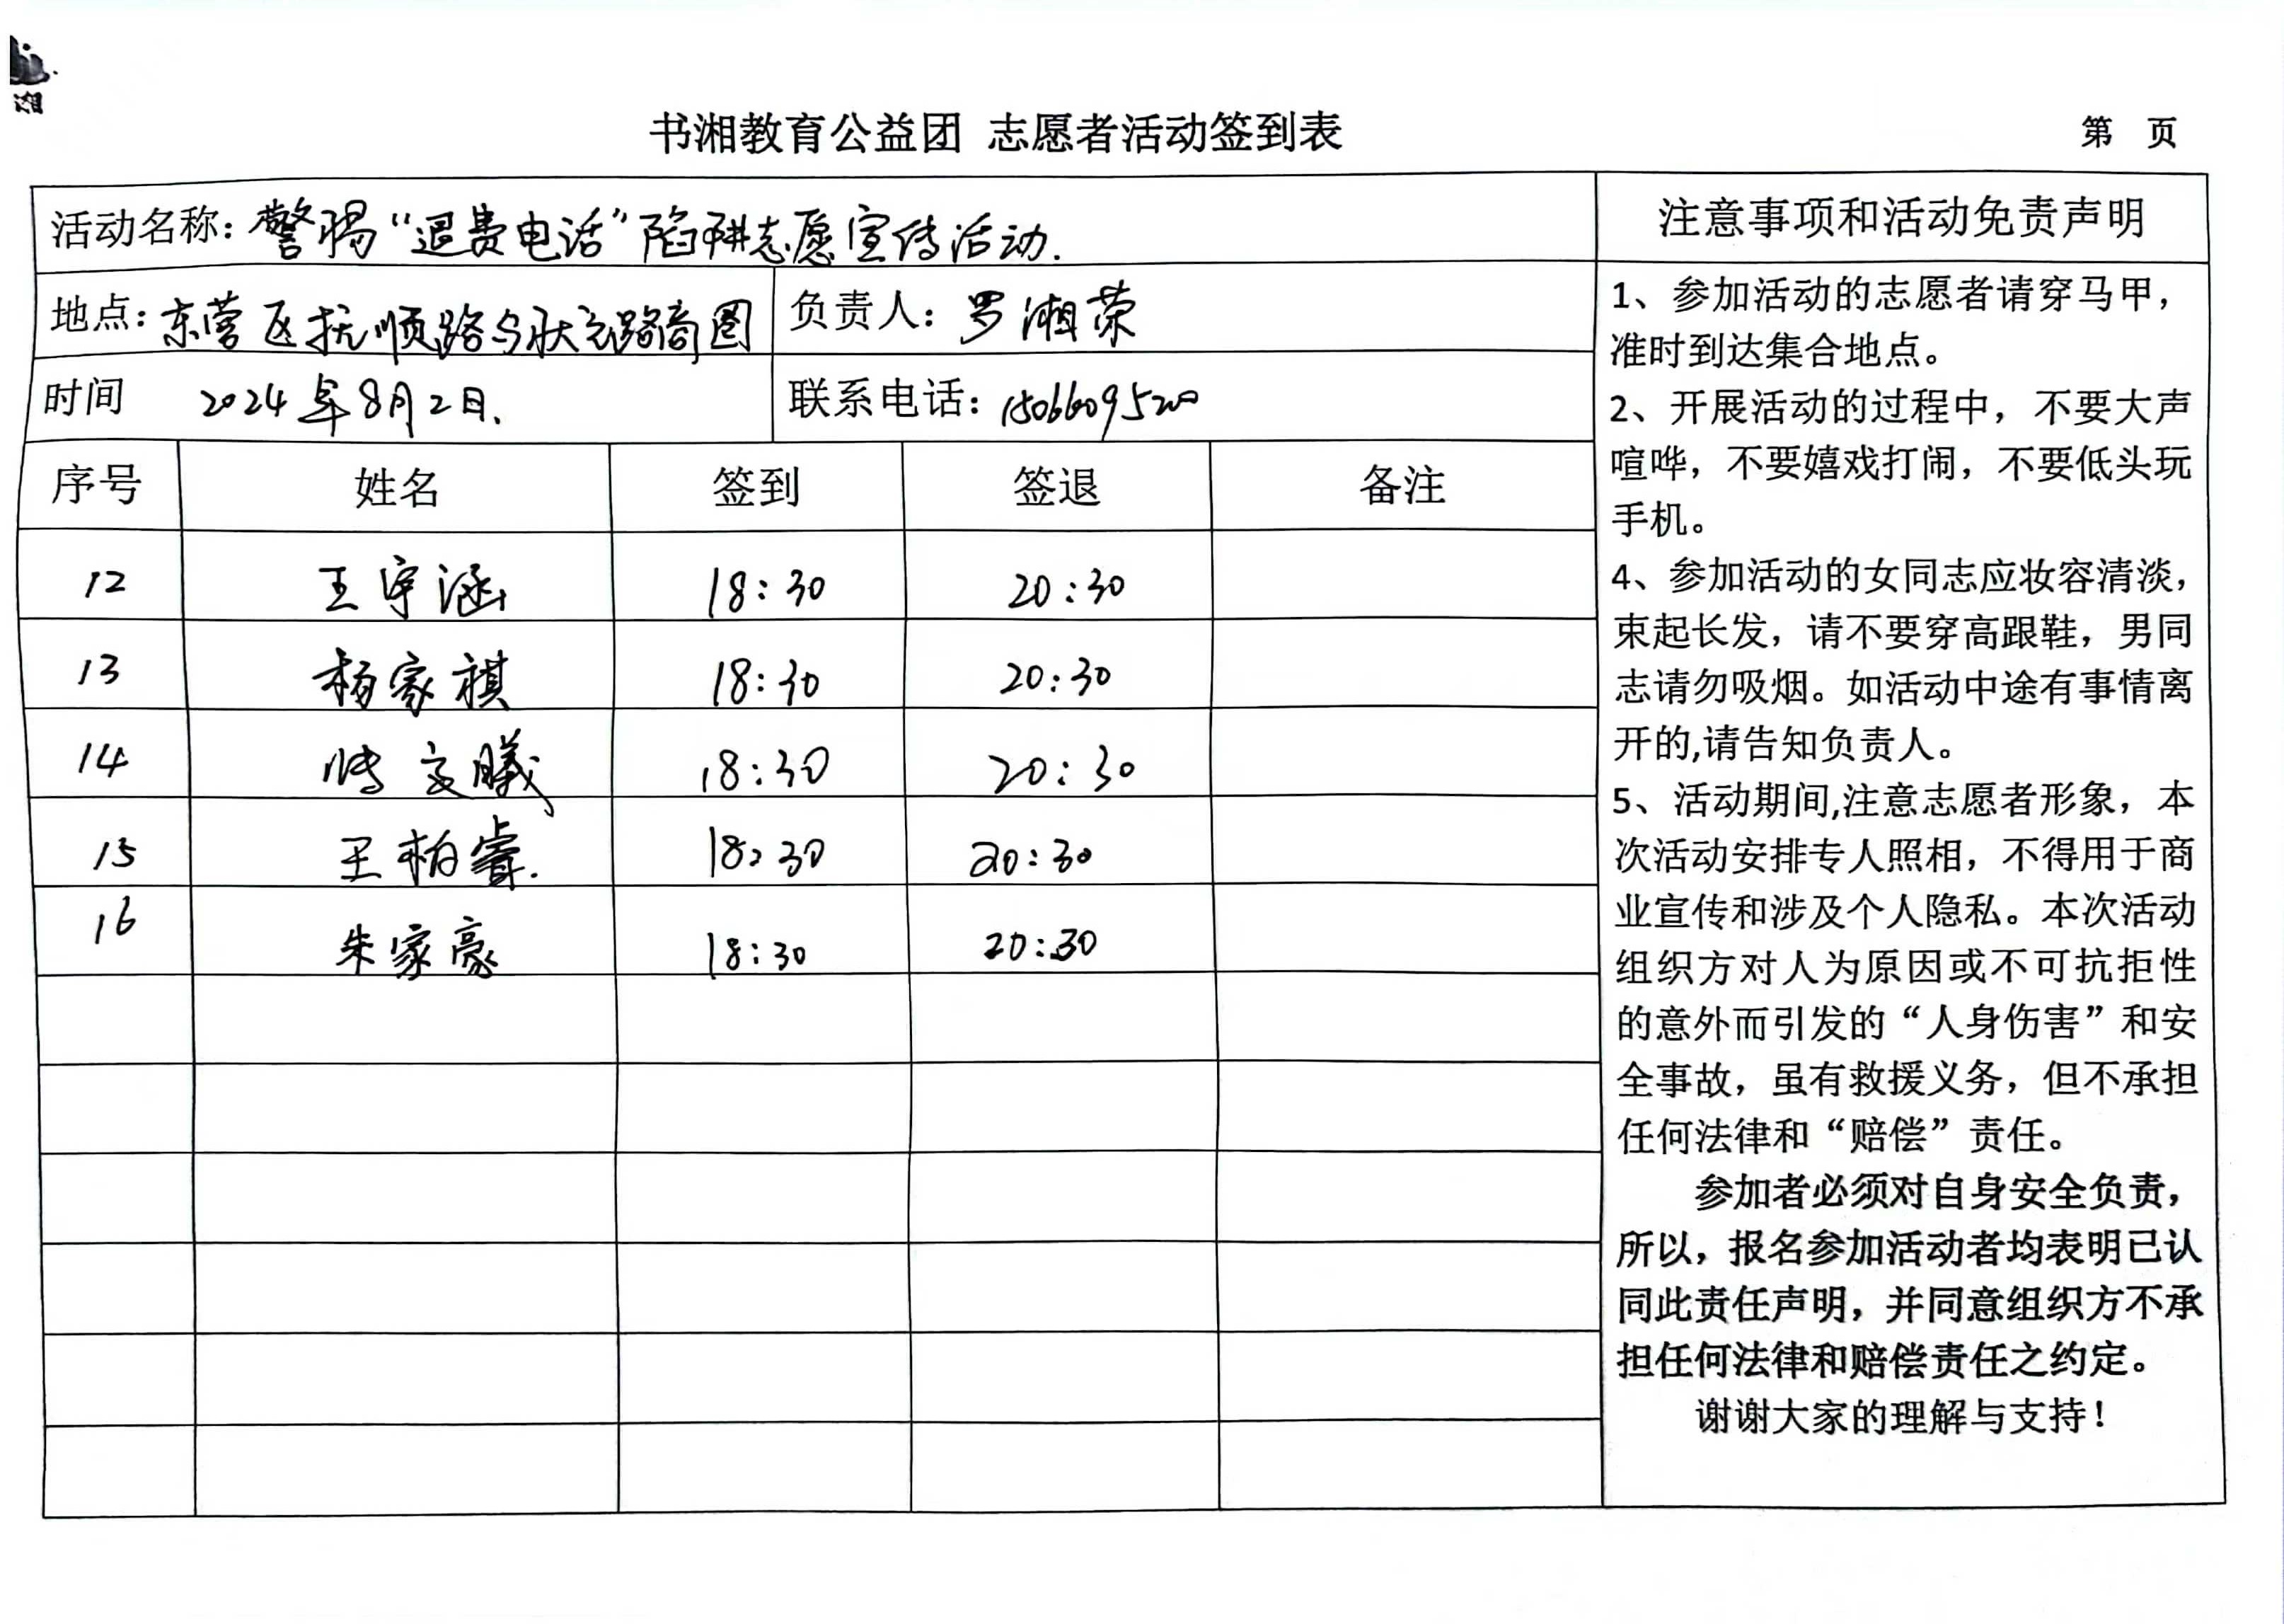 湘
书湘教育公益团 志愿者活动签到表
第 页
活动名称：警惕“退费电话”陷阱志愿宣传活动.
地点：东营区抚顺路与状元路商圈
负责人：罗湘荣
时间 2024年8月2日.
联系电话：15066095200
序号 姓名 签到 签退 备注
12 王宇涵 18:30 20:30
13 杨家祺 18:30 20:30
14 傅文曦 18:30 20:30
15 王柏睿. 18:30 20:30
16 朱家豪 18:30 20:30
注意事项和活动免责声明
1、参加活动的志愿者请穿马甲，
准时到达集合地点。
2、开展活动的过程中，不要大声
喧哗，不要嬉戏打闹，不要低头玩
手机。
4、参加活动的女同志应妆容清淡，
束起长发，请不要穿高跟鞋，男同
志请勿吸烟。如活动中途有事情离
开的,请告知负责人。
5、活动期间,注意志愿者形象，本
次活动安排专人照相，不得用于商
业宣传和涉及个人隐私。本次活动
组织方对人为原因或不可抗拒性
的意外而引发的“人身伤害”和安
全事故，虽有救援义务，但不承担
任何法律和“赔偿”责任。
参加者必须对自身安全负责，
所以，报名参加活动者均表明已认
同此责任声明，并同意组织方不承
担任何法律和赔偿责任之约定。
谢谢大家的理解与支持！